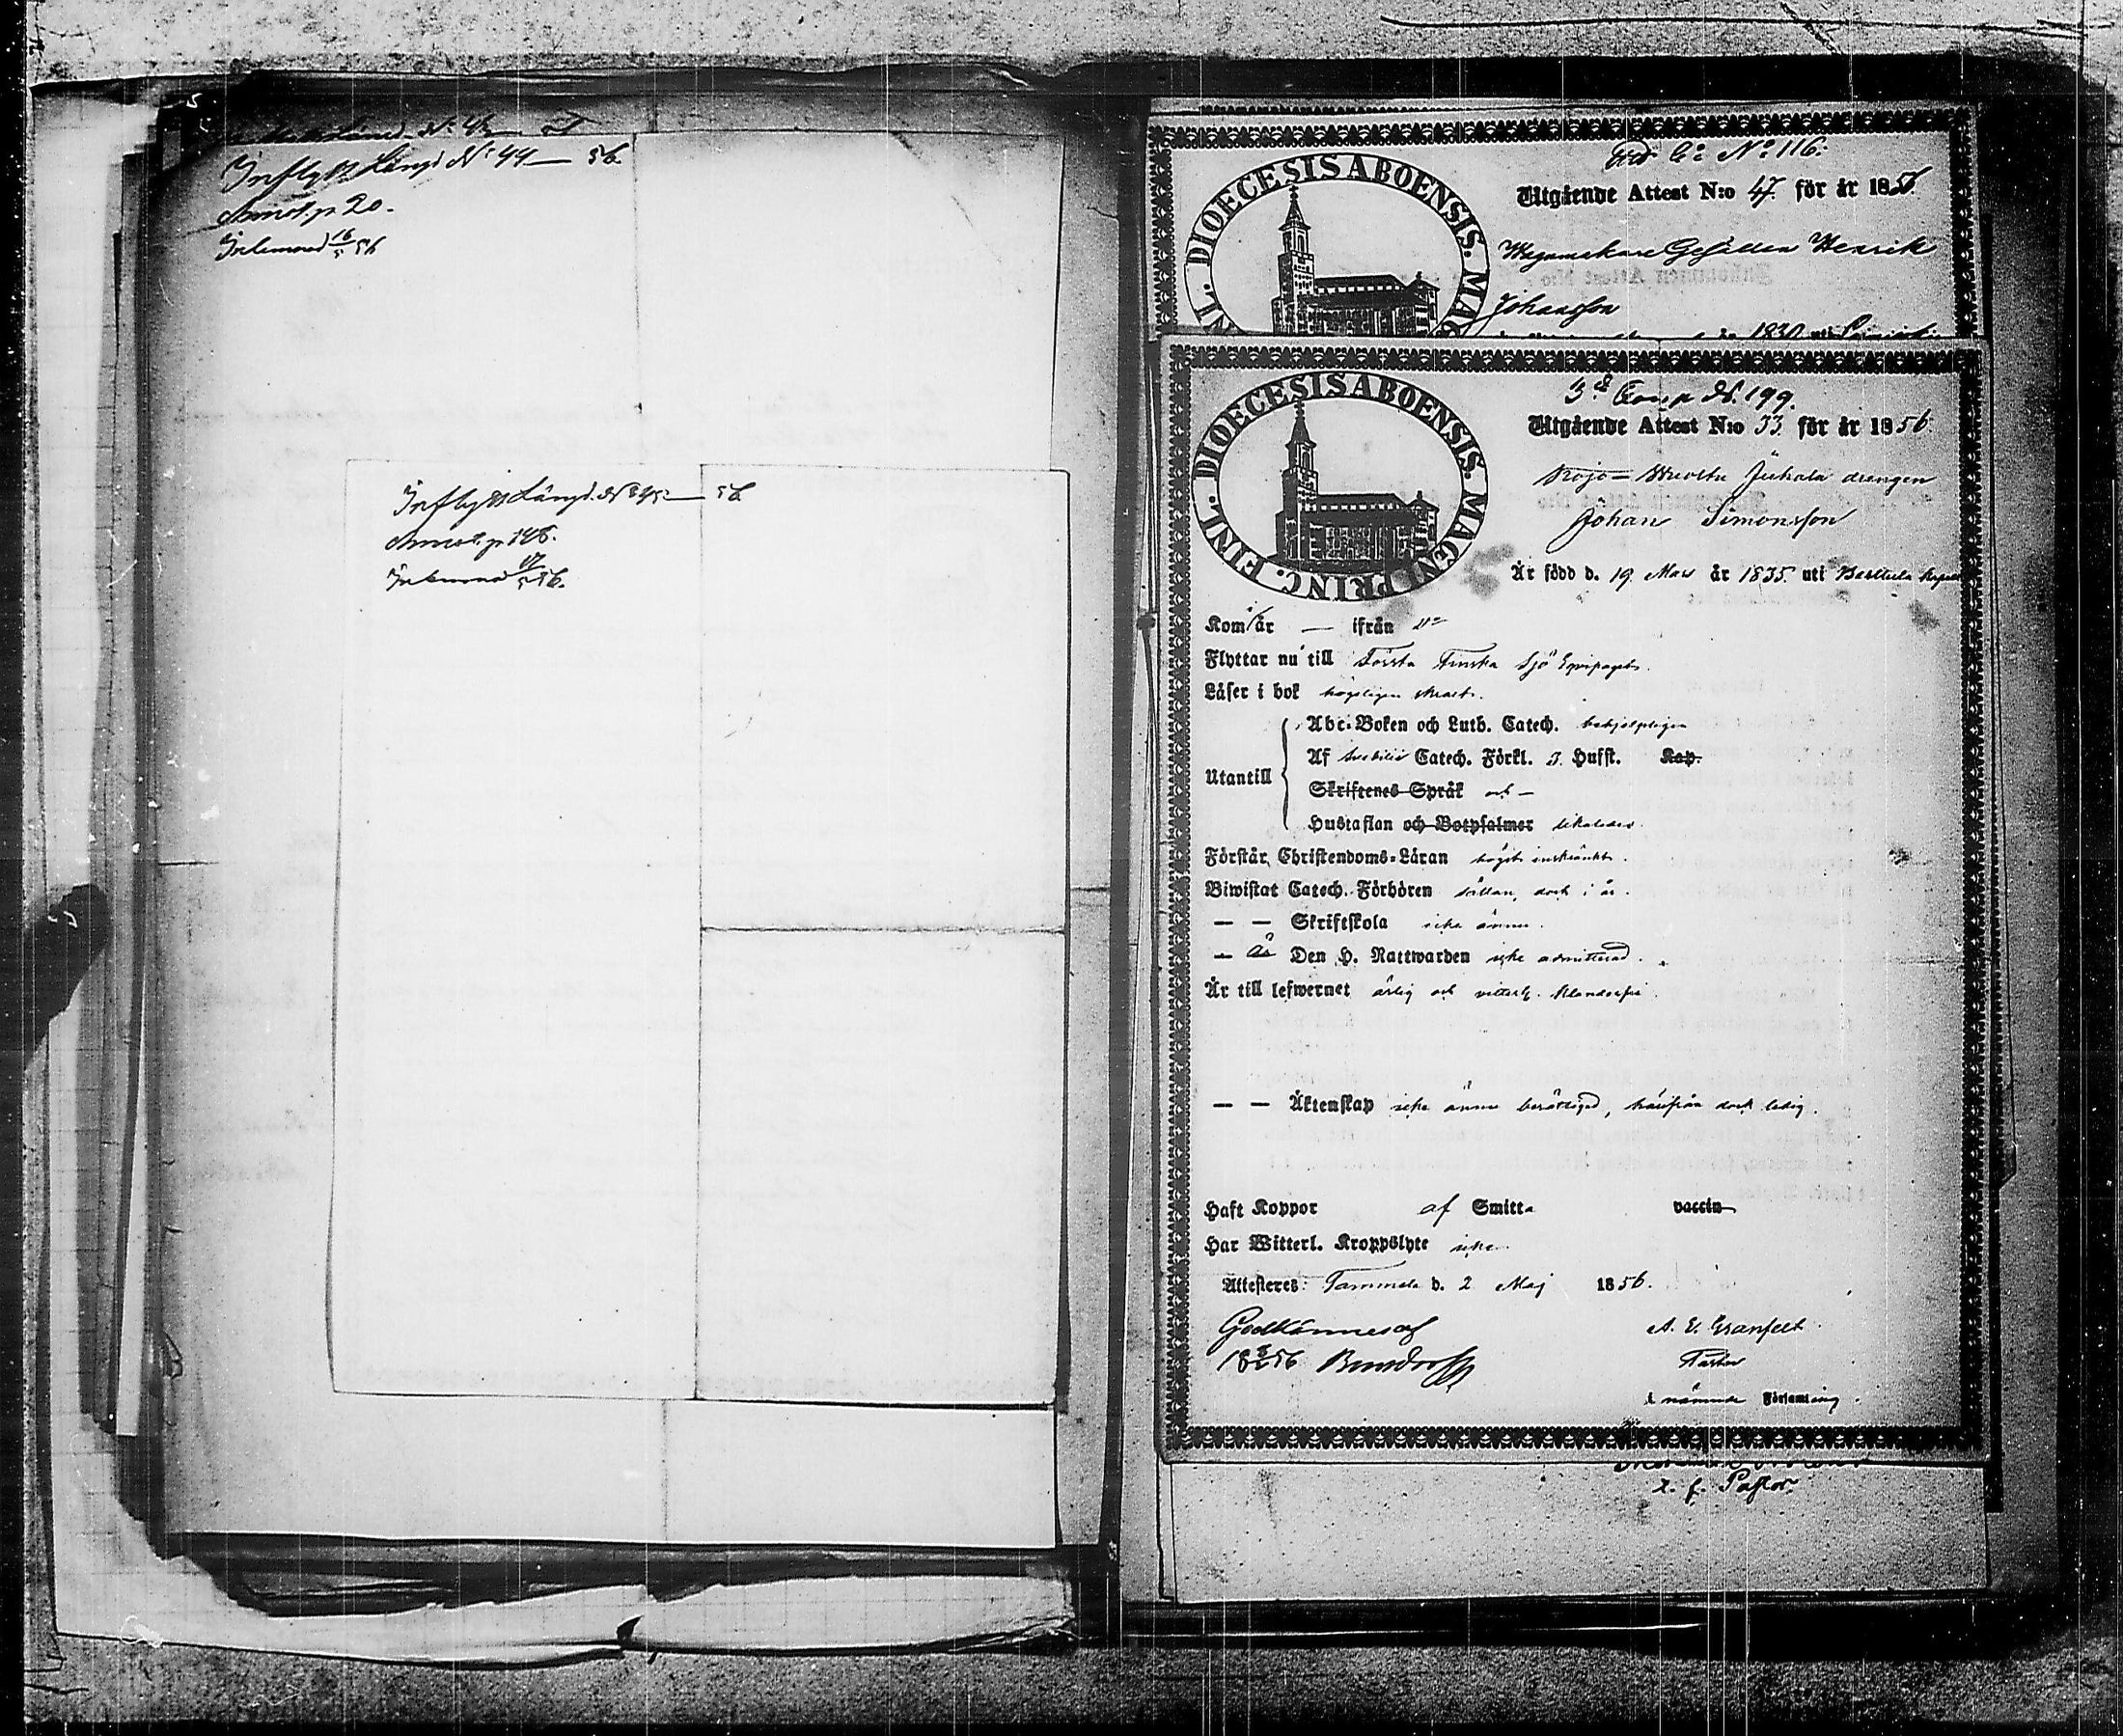 Inflyttn Längd No 44 — 56.
Annot. p 20.
Inlemnad 16/5 56
Inflyttn Längd. No 45 — 56
Annot. p 146.
Inlemnad 17/5 56.
No 116.
DIOECESIS ABOENSIS. MAG
FINL.
Utgående Attest N:o 47. för år 1856.
Wagnmakare Gesällen Henrik
Johansson
1830 uti
3e Comp No. 199.
DIOECESIS ABOENSIS. MAGNI PRINC. FINL.
Utgående Attest N:o 33. för år 1856
Kojo Juhola drengen
Johan Simonsson
Är född d. 19 Mars år 1835. uti Kapell
Kom i/år — ifrån
Flyttar nu till Första Finska Sjö Equipaget.
Läser i bok högeligen svagt.
Utantill
Abc-Boken och Luth. Catech. behjelpligen
Af Svebilii Catech. Förkl. 3. Hufst. Kap.
Skriftenes Språk och —
Hustaflan och Botpsalmer likaledes.
Förstår Christendoms-Läran högst inskränkt.
Biwistat Catech. Förhören sällan, dock i år.
— — Skriftskola icke ännu.
— Är Den H. Nattwarden icke admitterad.
Är till lefwernet ärlig och vitterl. klanderfri.
— — Äktenskap icke ännu berättigad, härifrån dock ledig.
Haft Koppor af Smitta vaccin
Har Witterl. Kroppslyte icke.
Attesteres: Tammela d. 2 Maj 1856.
Godkännes af
A. E. Granfelt.
Pastor
i nämnde Församling.
t. f. Pastor.